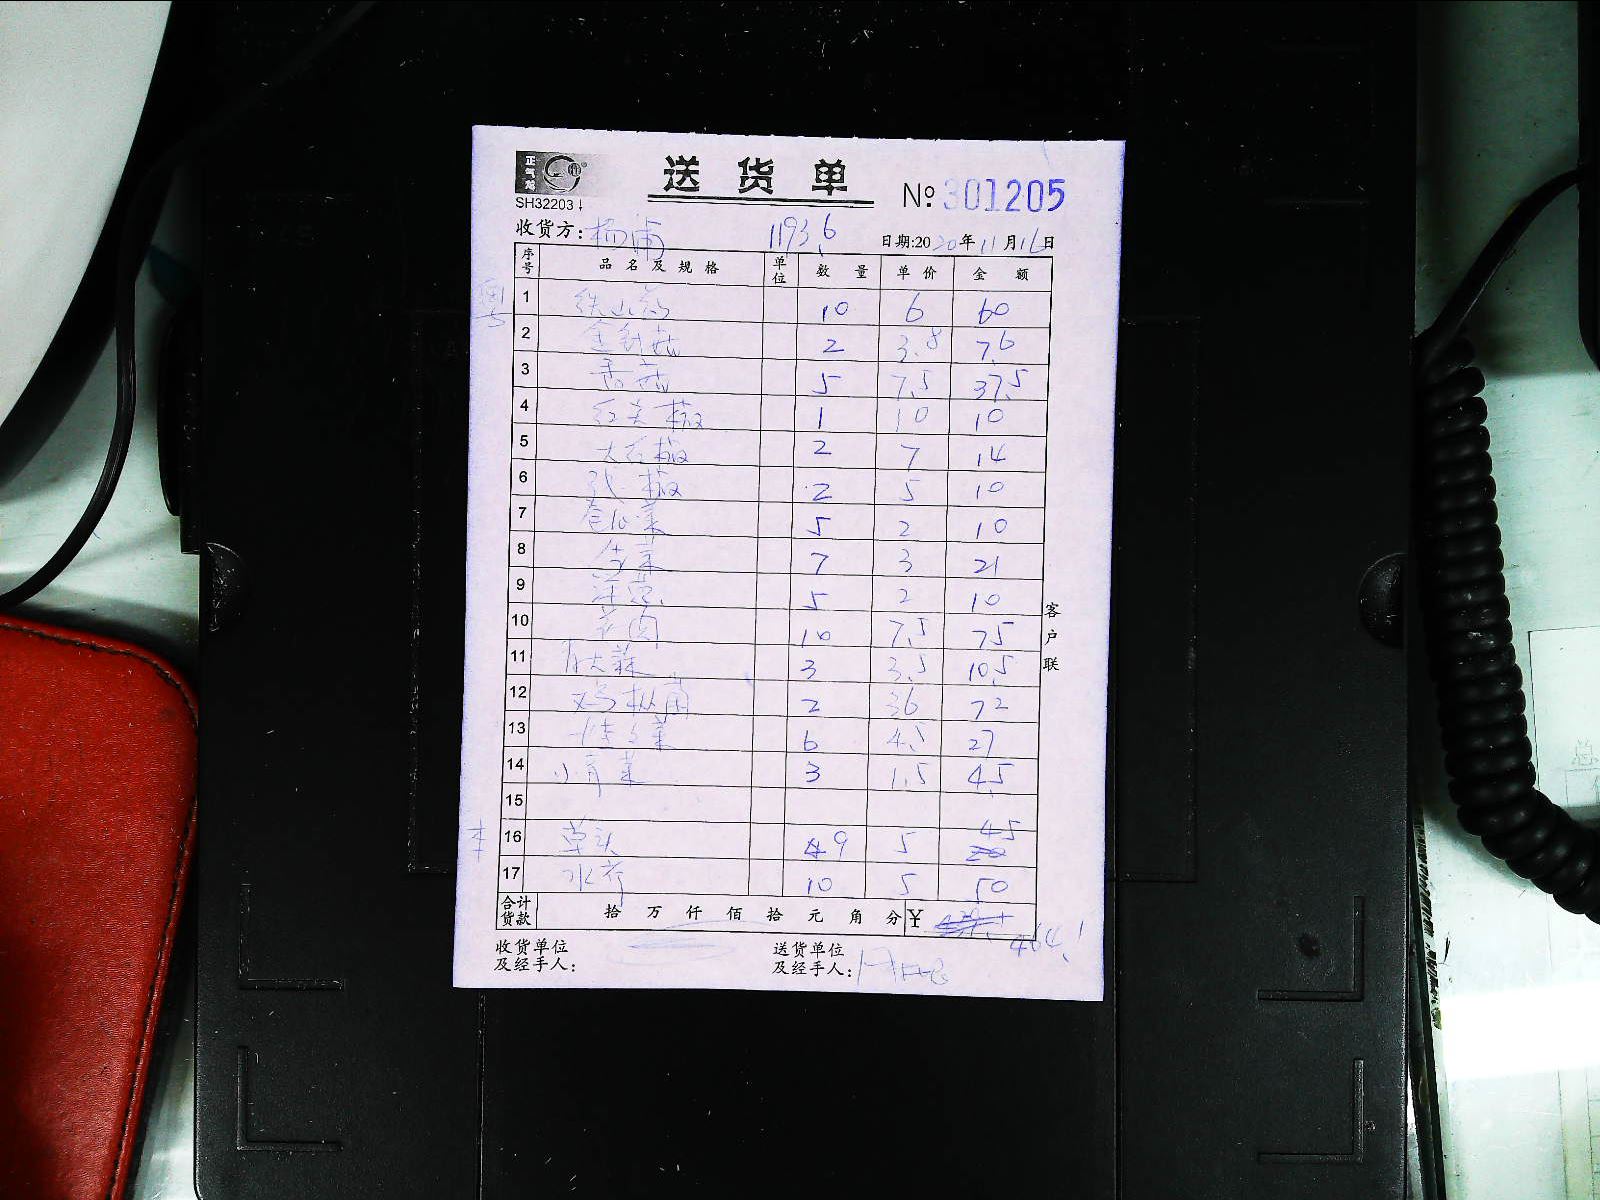 正气龙
送货单
SH32203
№ 301205
收货方: 杨浦 1193.6 日期:2020年11月16日
序号 品名及规格 单位 数量 单价 金额
1 铁山药 10 6 60
2 金针菇 2 3.8 7.6
3 香菇 5 7.5 37.5
4 红尖椒 1 10 10
5 大红椒 2 7 14
6 椒 2 5 10
7 包心菜 5 2 10
8 生菜 7 3 21
9 洋葱 5 2 10
10 10 7.5 75
11 青大蒜 3 3.5 10.5
12 鸡 2 36 72
13 娃娃菜 6 4.5 27
14 小青菜 3 1.5 4.5
15
16 草头 9 5 45
17 水芹 10 5 50
合计货款 拾万仟佰拾元角分 ¥ 464.1
收货单位及经手人:
送货单位及经手人:
客户联